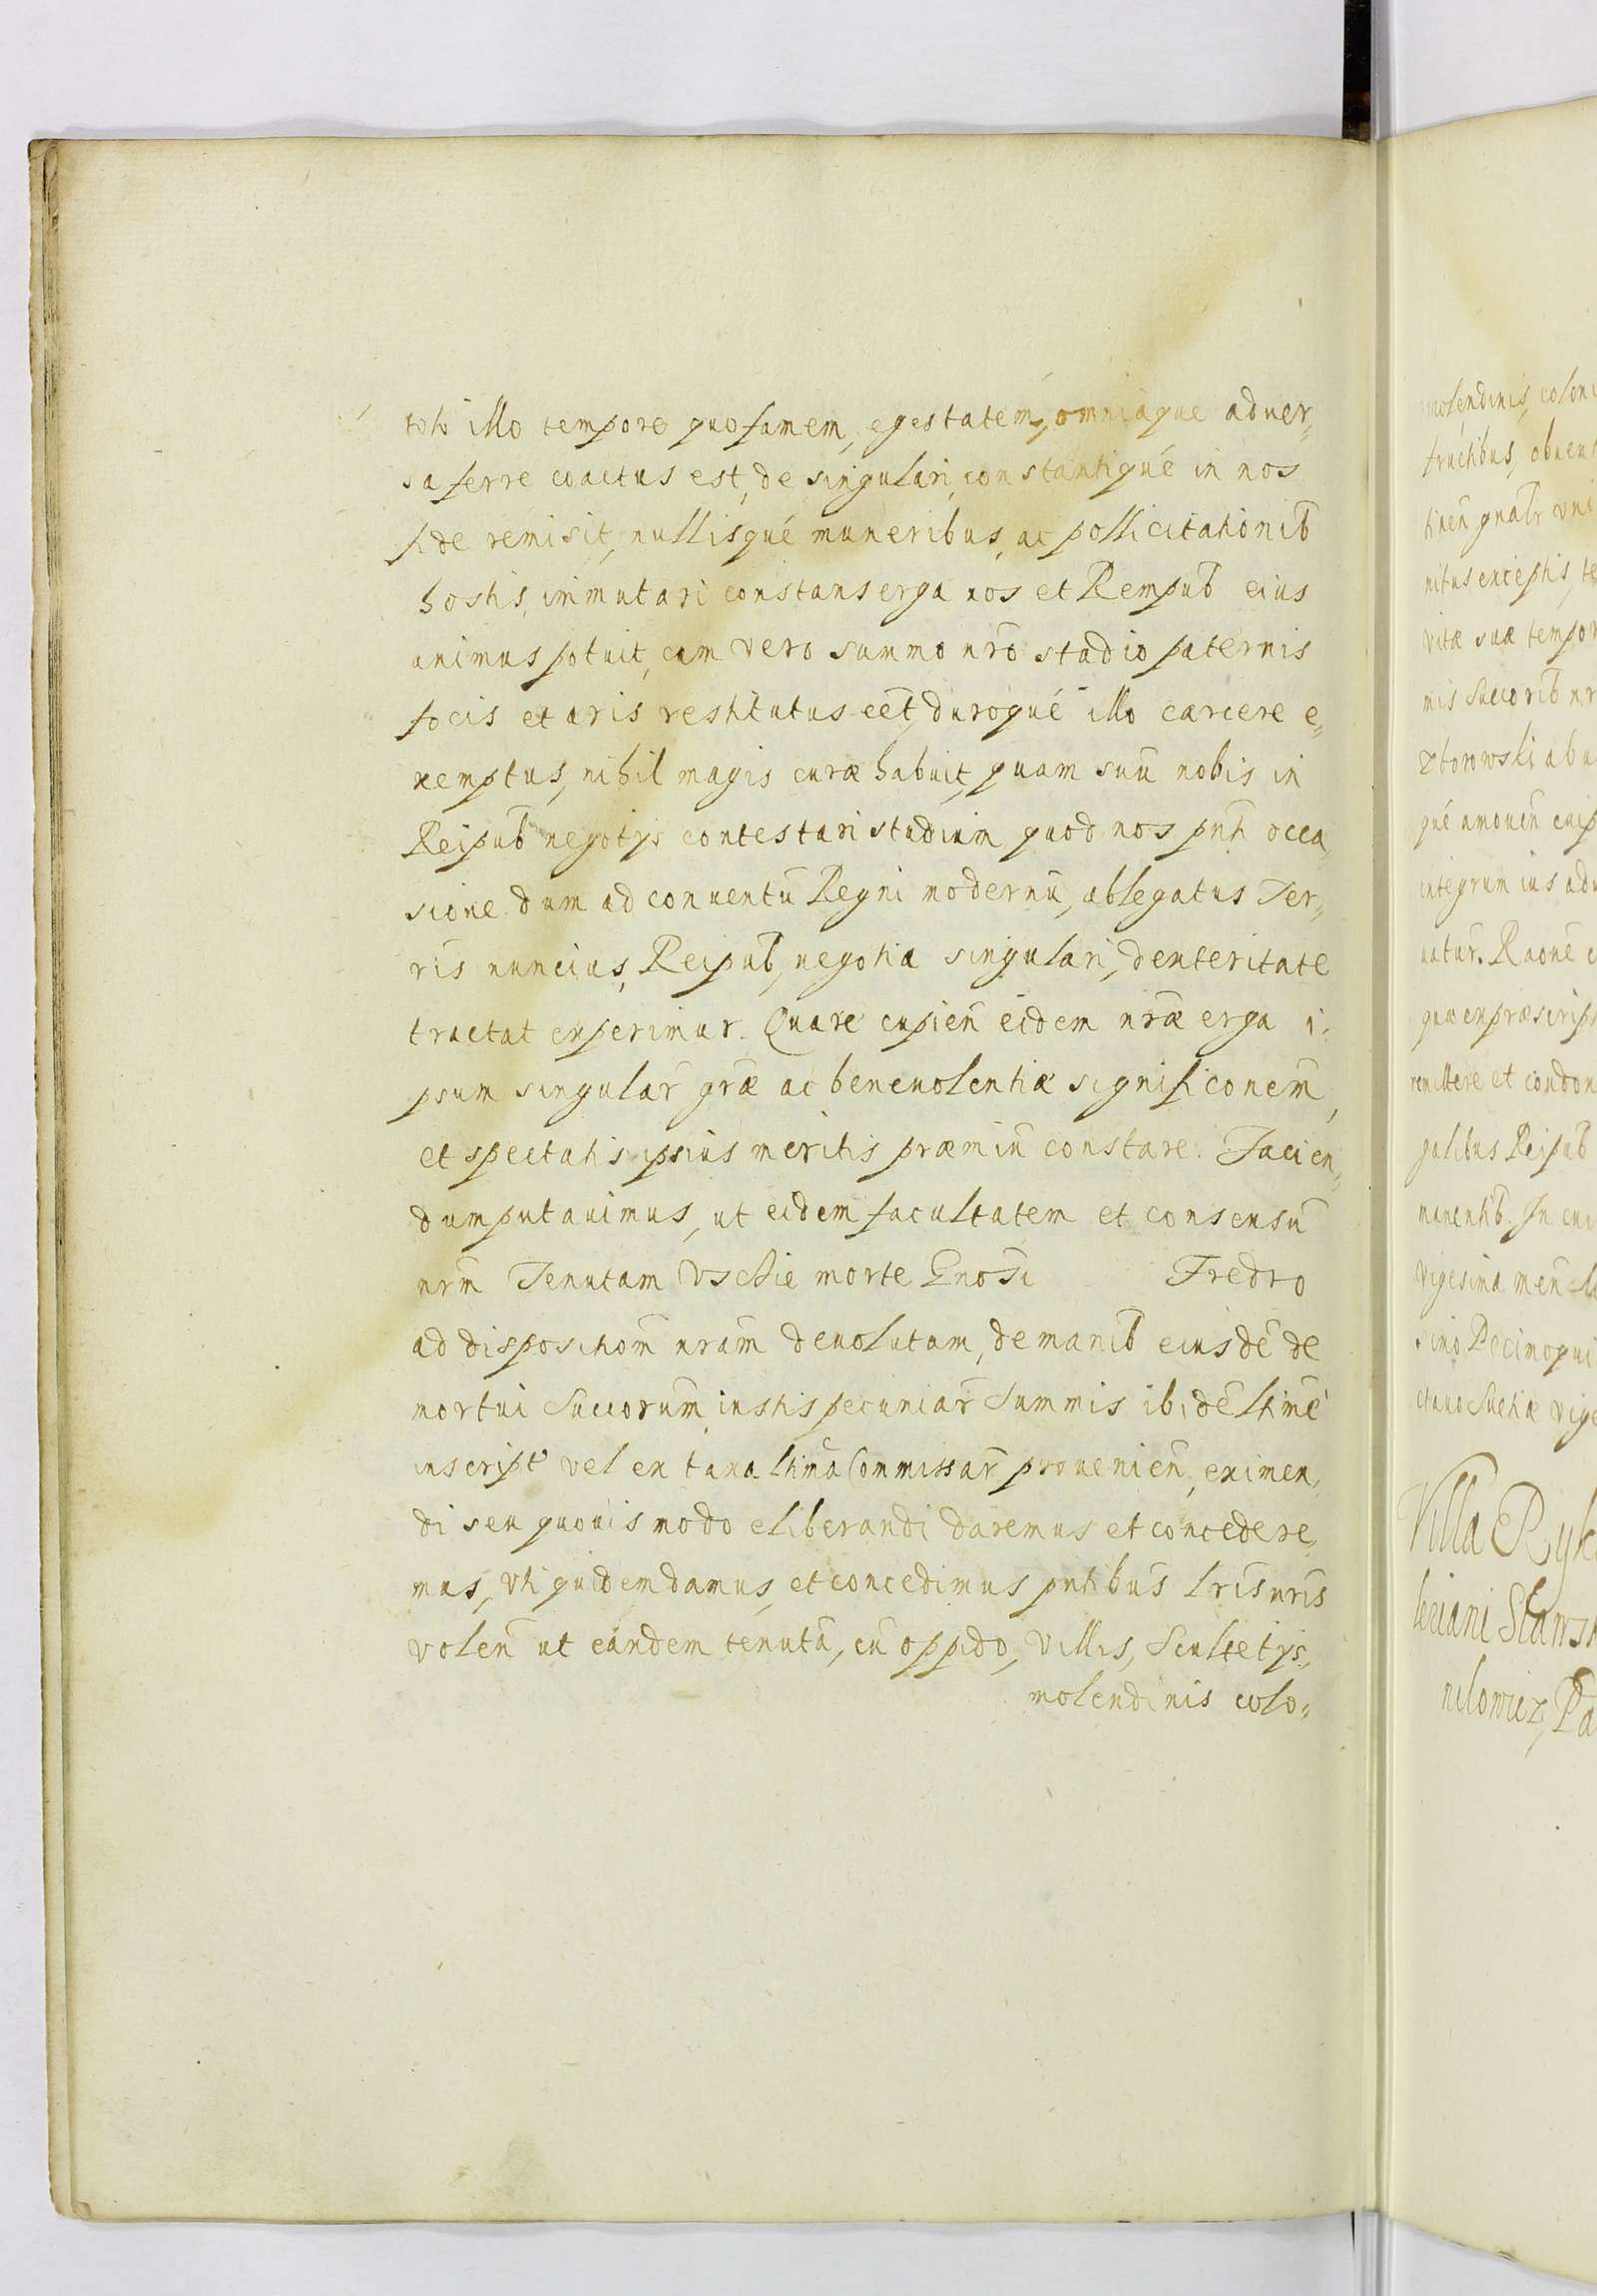 toto illo tempore quo famem, egestatem, omniaque aduer„
sa ferre coactus est, de singulari, constantiqué in nos
fide remisit, nullisqué muneribus, ac pollicitationib̄
hostis, immutari constans erga nos et Rempub̄ eius
animus potuit, cum vero summo nr̄o studio paternis
focis et aris restitutus eēt, duroqué illo carcere e„
xemptus, nihil magis curæ habuit, quam suū nobis in
Reipub̄ negotijs contestari studium quod nos pn̄ti occa„
sione dum ad conuentū Regni modernū, ablegatus Ter„
ris nuncius, Reipub̄, negotia singulari, dexteritate
tractat experimur. Quare cupien̄ eidem nr̄æ erga i„
psum singular̄ gr̄æ ac beneuolentiæ significonem̄,
et spectatis ipsius meritis præmiū constare. Facien„
dum putauimus, ut eidem facultatem et consensū
nrm̄ Tenutam Vschie morte Gnōsi Fredro
ad dispositiom̄ nram̄ deuolutam, de manib̄ eiusdē de
mortui Succorum̄ iustis pecuniar̄ Summis ibidē ltīmé
inscript vel ex taxa ltīma Commissar̄ prouenien̄, eximen„
di seu quouis modo eliberandi daremus et concedere„
mus, vti quidem damus, et concedimus pn̄tibus lr̄is nr̄is
volen̄ ut eandem tenutā, cū oppido, villis, Scultetijs,
molendinis colo„
molendinis, coloni
fructibus, obuen
tinen̄ gnalr̄ vni
nitus exceptis, te
vitæ suæ tempor
nis Succorib̄ nr
Zborowski ab u
qué amouen̄ cuip
integrum ius adu
uatur. Raonē e
quæ ex præscrip
remittere et condon
galibus Reipub̄
manentib̄. In cui
Vigesima men̄
simo Decimo qui
ctauo Suetiæ vige
Villa Ryk
leriani Stawsk
nilowicz, Pa